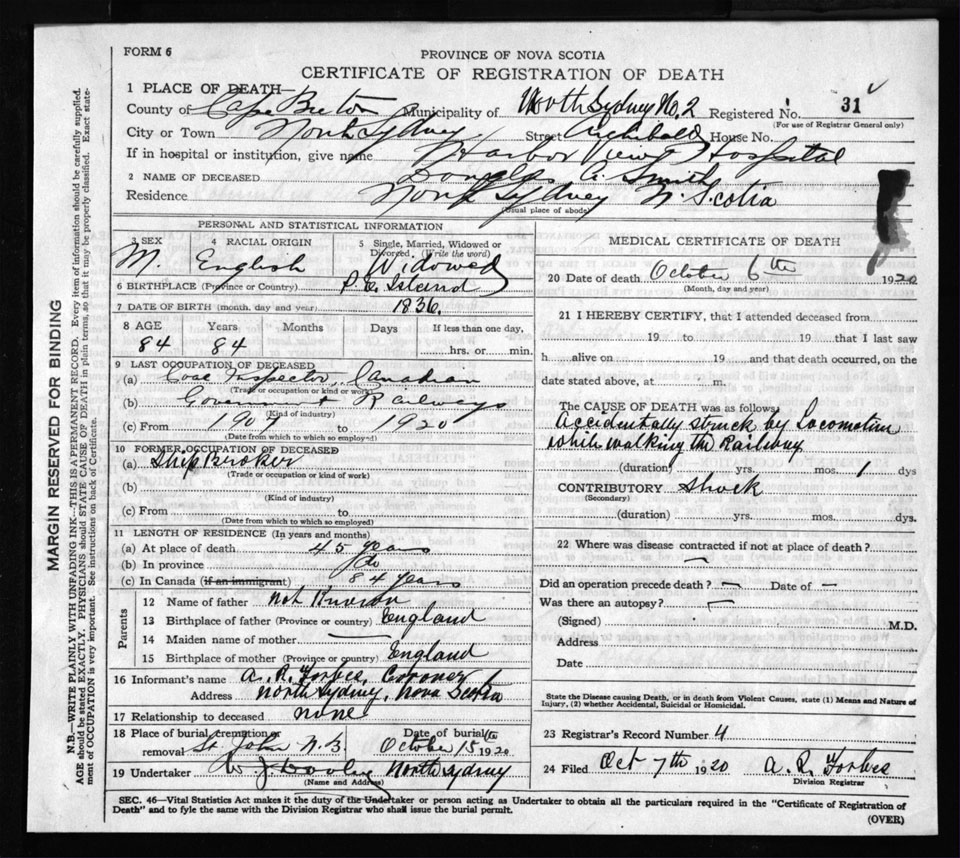 FORM 6
PROVINCE OF NOVA SCOTIA
CERTIFICATE OF REGISTRATION OF DEATH
MARGIN RESERVED FOR BINDING
N.B.—WRITE PLAINLY WITH UNFADING INK—THIS IS A PERMANENT RECORD. Every item of information should be carefully supplied.
AGE should be stated EXACTLY. PHYSICIANS should STATE CAUSE OF DEATH in plain terms, so that it may be properly classified. Exact state-
ment of OCCUPATION is very important. See instructions on back of Certificate.
1 PLACE OF DEATH—
County of Cape Breton Municipality of North Sydney No. 2 Registered No. 31
(For use of Registrar General only)
City or Town North Sydney Street Archibald House No.
If in hospital or institution, give name Harbor View Hospital
2 NAME OF DECEASED Douglas A. Smith
Residence North Sydney N. Scotia
(Usual place of abode)
PERSONAL AND STATISTICAL INFORMATION
3 SEX M.
4 RACIAL ORIGIN English
5 Single, Married, Widowed or Divorced. (Write the word) Widowed
6 BIRTHPLACE (Province or Country) P.E. Island
7 DATE OF BIRTH (month, day and year) 1836.
8 AGE Years Months Days If less than one day,
84 84 hrs. or min.
9 LAST OCCUPATION OF DECEASED
(a) Coal Inspector, Canadian
(Trade or occupation or kind or work)
(b) Government Railways
(Kind of industry)
(c) From 1907 to 1920
(Date from which to which so employed)
10 FORMER OCCUPATION OF DECEASED
(a) Ship Broker
(Trade or occupation or kind of work)
(b)
(Kind of industry)
(c) From to
(Date from which to which so employed)
11 LENGTH OF RESIDENCE (In years and months)
(a) At place of death 45 years
(b) In province do
(c) In Canada (if an immigrant) 84 years
Parents
12 Name of father not Known
13 Birthplace of father (Province or country) England
14 Maiden name of mother —
15 Birthplace of mother (Province or country) England
16 Informant's name A. R. Forbes, Coroner
Address North Sydney, Nova Scotia
17 Relationship to deceased none
18 Place of burial, cremation or Date of burial
removal St. John N.B. October 1920
19 Undertaker W. J. Dooley North Sydney
(Name and Address)
MEDICAL CERTIFICATE OF DEATH
20 Date of death October 6th 1920
(Month, day and year)
21 I HEREBY CERTIFY, that I attended deceased from
19 to 19 that I last saw
h alive on 19 and that death occurred, on the
date stated above, at m.
The CAUSE OF DEATH was as follows
Accidentally struck by Locomotive
while walking the Railway
(duration) yrs. mos. 1 dys
CONTRIBUTORY Shock
(Secondary)
(duration) yrs. mos. dys.
22 Where was disease contracted if not at place of death?
—
Did an operation precede death? — Date of —
Was there an autopsy? —
(Signed) M.D.
Address
Date
State the Disease causing Death, or in death from Violent Causes, state (1) Means and Nature of
Injury, (2) whether Accidental, Suicidal or Homicidal.
23 Registrar's Record Number 4
24 Filed Oct 7th 1920 A. R. Forbes
Division Registrar
SEC. 46—Vital Statistics Act makes it the duty of the Undertaker or person acting as Undertaker to obtain all the particulars required in the "Certificate of Registration of
Death" and to fyle the same with the Division Registrar who shall issue the burial permit.
(OVER)